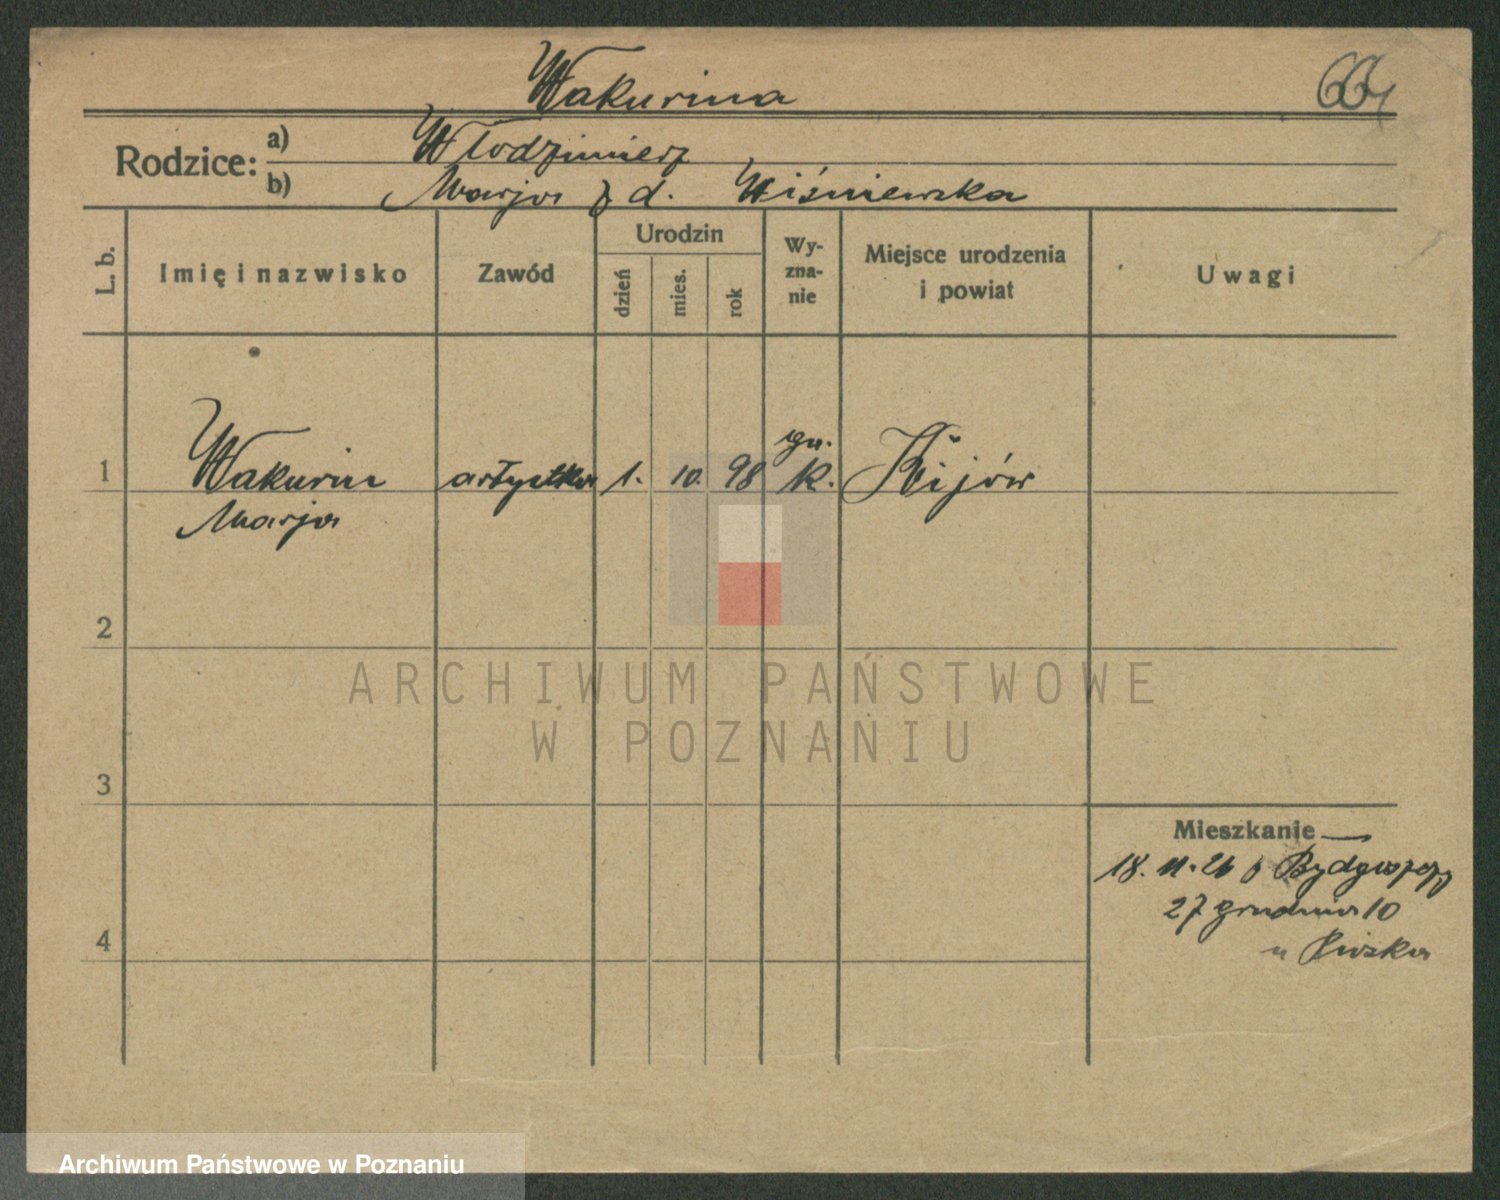 Wakurina
Rodzice:
a) Włodzimierz
b) Marja z d. Wiśniewska
L. b.
Imię i nazwisko
Zawód
Urodzin
dzień
mies.
rok
Wy-
zna-
nie
Miejsce urodzenia
i powiat
Uwagi
gr.
1 Wakurin artystka 1. 10. 98 k. Kijów
Marja
2
3
4
Mieszkanie
18. 11. 26 z Bydgoszczy
27 grudnia 10
u
ARCHIWUM PAŃSTWOWE
W POZNANIU
Archiwum Państwowe w Poznaniu